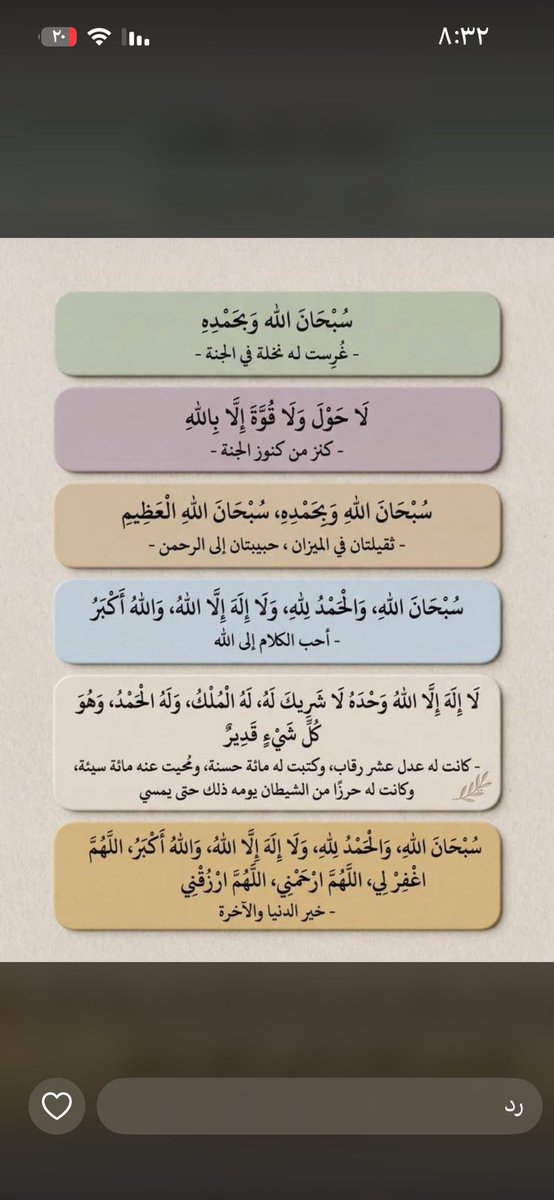 ٨:٣٢
٢٠
سُبْحَانَ الله وَبِحَمْدِهِ
- غُرِست له نخلة في الجنة -
لَا حَوْلَ وَلَا قُوَّةَ إِلَّا بِاللهِ
- كنز من كنوز الجنة -
سُبْحَانَ اللهِ وَبِحَمْدِهِ، سُبْحَانَ اللهِ الْعَظِيمِ
- ثقيلتان في الميزان ، حبيبتان إلى الرحمن -
سُبْحَانَ اللهِ، وَالْحَمْدُ لِلهِ، وَلَا إِلَهَ إِلَّا اللهُ، وَاللهُ أَكْبَرُ
- أحب الكلام إلى الله
لَا إِلَهَ إِلَّا اللهُ وَحْدَهُ لَا شَرِيكَ لَهُ، لَهُ الْمُلْكُ، وَلَهُ الْحَمْدُ، وَهُوَ
كُلِّ شَيْءٍ قَدِيرٌ
- كانت له عدل عشر رقاب، وكتبت له مائة حسنة، ومُحيت عنه مائة سيئة،
وكانت له حرزًا من الشيطان يومه ذلك حتى يمسي
سُبْحَانَ اللهِ، وَالْحَمْدُ لِلهِ، وَلَا إِلَهَ إِلَّا اللهُ، وَاللهُ أَكْبَرُ، اللَّهُمَّ
اغْفِرْ لِي، اللَّهُمَّ ارْحَمْنِي، اللَّهُمَّ ارْزُقْنِي
- خير الدنيا والآخرة
رد